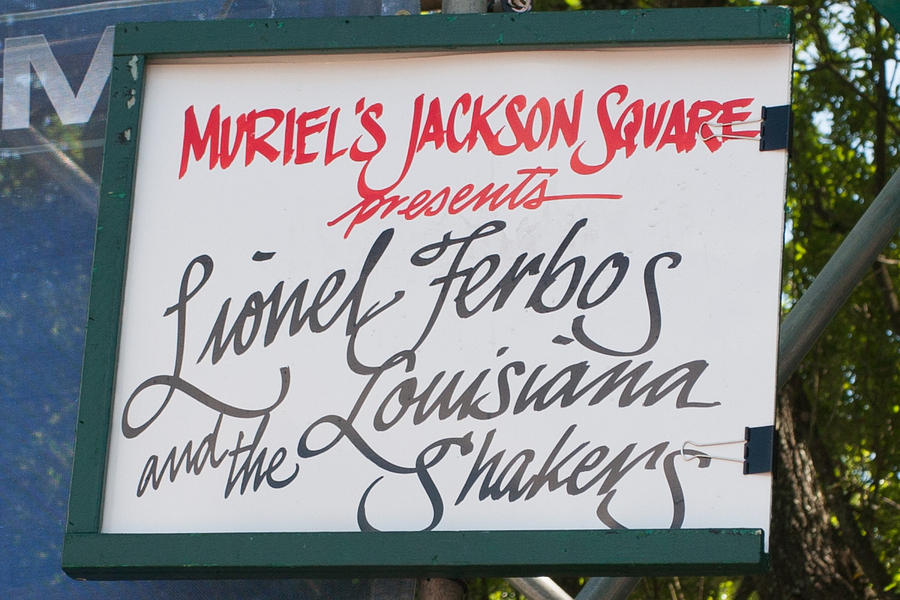 M
MURIEL'S JACKSON SQUARE
presents
Lionel Ferbos
and the Louisiana
Shakers